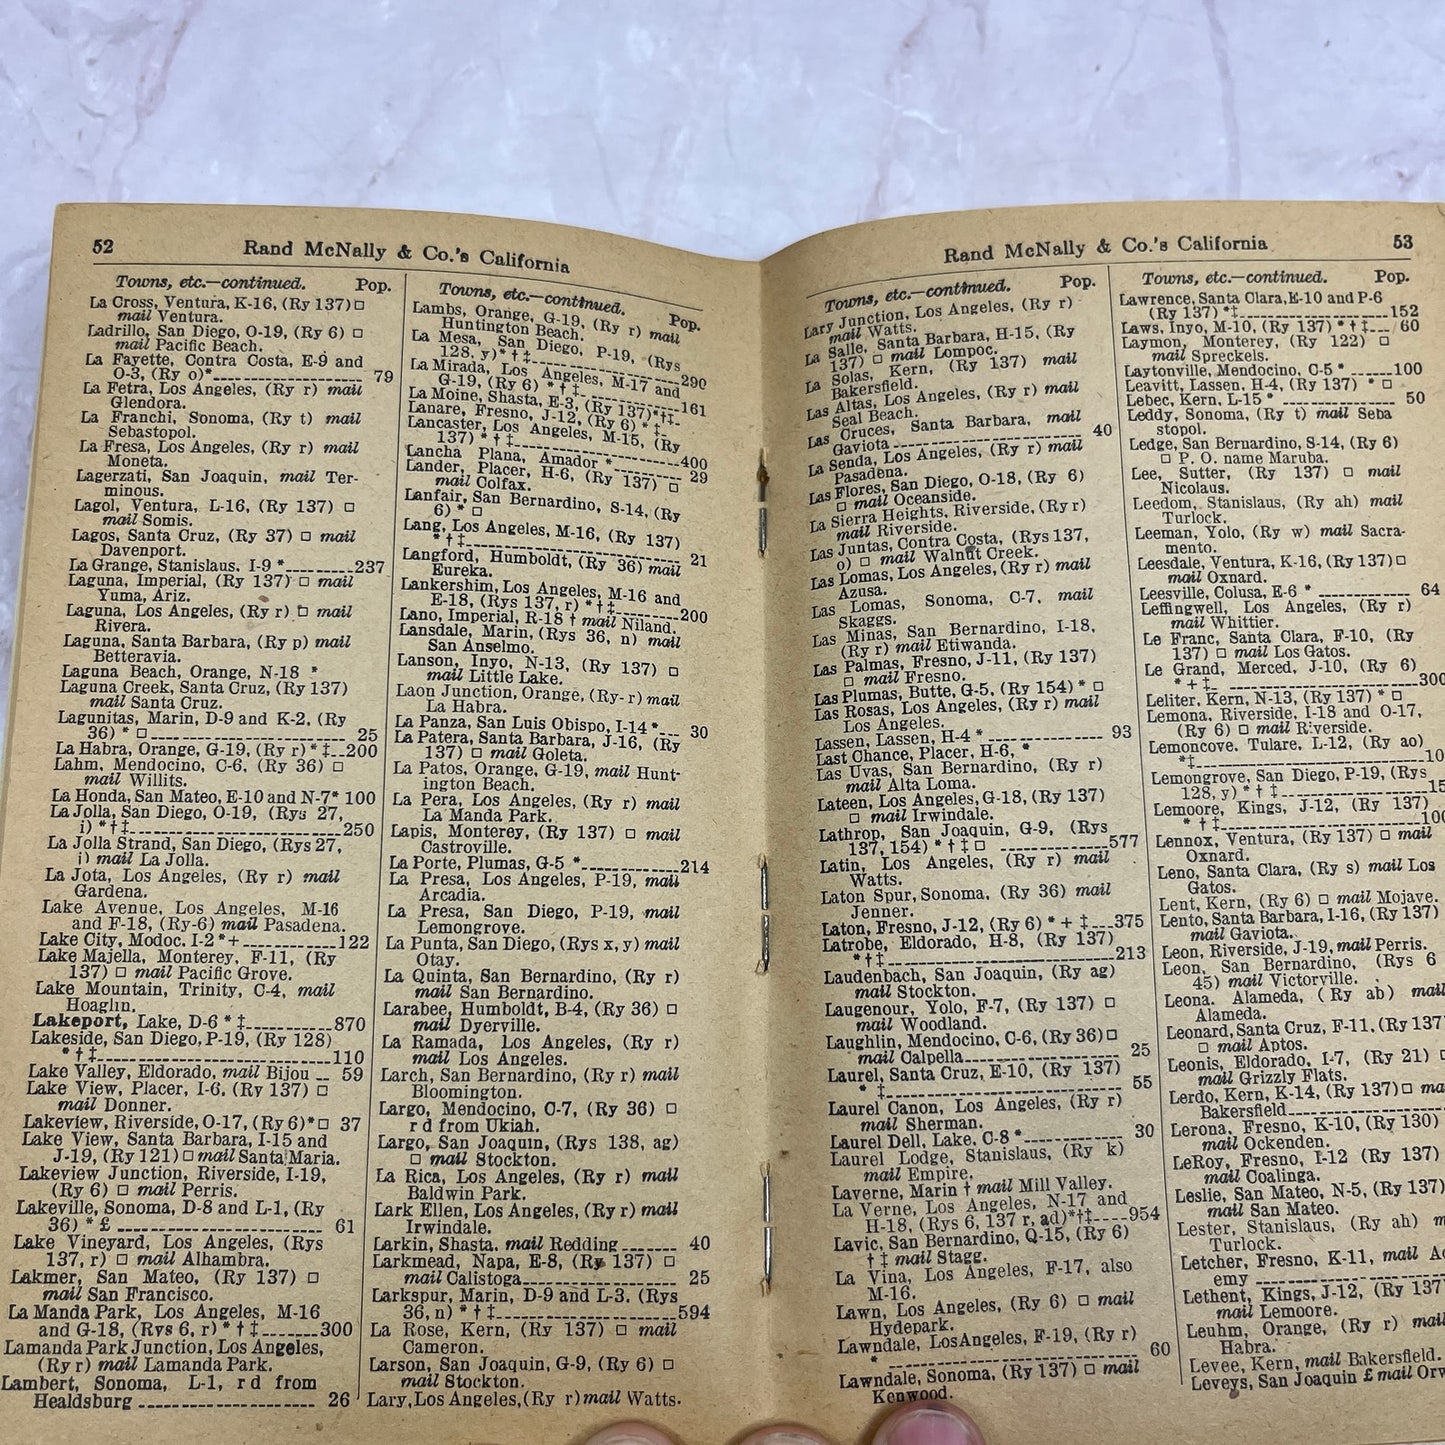 52
Rand McNally & Co.'s California
Towns, etc.—continued. Pop.
La Cross, Ventura, K-16, (Ry 137) □
mail Ventura.
Ladrillo, San Diego, O-19, (Ry 6) □
mail Pacific Beach.
La Fayette, Contra Costa, E-9 and
O-3, (Ry o)*------------------- 79
La Fetra, Los Angeles, (Ry r) mail
Glendora.
La Franchi, Sonoma, (Ry t) mail
Sebastopol.
La Fresa, Los Angeles, (Ry r) mail
Moneta.
Lagerzati, San Joaquin, mail Ter-
minous.
Lagol, Ventura, L-16, (Ry 137) □
mail Somis.
Lagos, Santa Cruz, (Ry 37) □ mail
Davenport.
La Grange, Stanislaus. I-9 *---------237
Laguna, Imperial, (Ry 137) □ mail
Yuma, Ariz.
Laguna, Los Angeles, (Ry r) □ mail
Rivera.
Laguna, Santa Barbara, (Ry p) mail
Betteravia.
Laguna Beach, Orange, N-18 *
Laguna Creek, Santa Cruz, (Ry 137)
mail Santa Cruz.
Lagunitas, Marin, D-9 and K-2, (Ry
36) * □---------------------- 25
La Habra, Orange, G-19, (Ry r)*‡--200
Lahm, Mendocino, C-6, (Ry 36) □
mail Willits.
La Honda, San Mateo, E-10 and N-7* 100
La Jolla, San Diego, O-19, (Rys 27,
i) *†‡-------------------------250
La Jolla Strand, San Diego, (Rys 27,
i) mail La Jolla.
La Jota, Los Angeles, (Ry r) mail
Gardena.
Lake Avenue, Los Angeles, M-16
and F-18, (Ry-6) mail Pasadena.
Lake City, Modoc. I-2 *+------------122
Lake Majella, Monterey, F-11, (Ry
137) □ mail Pacific Grove.
Lake Mountain, Trinity, C-4, mail
Hoaglin.
Lakeport, Lake, D-6 * ‡-----------870
Lakeside, San Diego, P-19, (Ry 128)
*†‡-----------------------------110
Lake Valley, Eldorado, mail Bijou -- 59
Lake View, Placer, I-6, (Ry 137) □
mail Donner.
Lakeview, Riverside, O-17, (Ry 6)*□ 37
Lake View, Santa Barbara, I-15 and
J-19, (Ry 121) □ mail Santa Maria.
Lakeview Junction, Riverside, I-19,
(Ry 6) □ mail Perris.
Lakeville, Sonoma, D-8 and L-1, (Ry
36) * £ -------------------------- 61
Lake Vineyard, Los Angeles, (Rys
137, r) □ mail Alhambra.
Lakmer, San Mateo, (Ry 137) □
mail San Francisco.
La Manda Park, Los Angeles, M-16
and G-18, (Rys 6, r) * † ‡-------300
Lamanda Park Junction, Los Angeles,
(Ry r) mail Lamanda Park.
Lambert, Sonoma, L-1, r d from
Healdsburg ---------------------- 26
Towns, etc.—continued. Pop.
Lambs, Orange, G-19, (Ry r) mail
Huntington Beach.
La Mesa, San Diego, P-19, (Rys
128, y)*†‡---------------------290
La Mirada, Los Angeles, M-17 and
G-19, (Ry 6) *†‡--------------161
La Moine, Shasta, E-3, (Ry 137)*†‡-
Lanare, Fresno, J-12, (Ry 6) * ‡
Lancaster, Los Angeles, M-15, (Ry
137) * † ‡---------------------400
Lancha Plana, Amador *--------- 29
Lander, Placer, H-6, (Ry 137) □
mail Colfax.
Lanfair, San Bernardino, S-14, (Ry
6) * □
Lang, Los Angeles, M-16, (Ry 137)
*†‡--------------------------- 21
Langford, Humboldt, (Ry 36) mail
Eureka.
Lankershim, Los Angeles, M-16 and
E-18, (Rys 137, r) *†‡---------200
Lano, Imperial, R-18 † mail Niland.
Lansdale, Marin, (Rys 36, n) mail
San Anselmo.
Lanson, Inyo, N-13, (Ry 137) □
mail Little Lake.
Laon Junction, Orange, (Ry- r) mail
La Habra.
La Panza, San Luis Obispo, I-14 *--- 30
La Patera, Santa Barbara, J-16, (Ry
137) □ mail Goleta.
La Patos, Orange, G-19, mail Hunt-
ington Beach.
La Pera, Los Angeles, (Ry r) mail
La Manda Park.
Lapis, Monterey, (Ry 137) □ mail
Castroville.
La Porte, Plumas, G-5 *------------214
La Presa, Los Angeles, P-19, mail
Arcadia.
La Presa, San Diego, P-19, mail
Lemongrove.
La Punta, San Diego, (Rys x, y) mail
Otay.
La Quinta, San Bernardino, (Ry r)
mail San Bernardino.
Larabee, Humboldt, B-4, (Ry 36) □
mail Dyerville.
La Ramada, Los Angeles, (Ry r)
mail Los Angeles.
Larch, San Bernardino, (Ry r) mail
Bloomington.
Largo, Mendocino, C-7, (Ry 36) □
r d from Ukiah.
Largo, San Joaquin, (Rys 138, ag)
□ mail Stockton.
La Rica, Los Angeles, (Ry r) mail
Baldwin Park.
Lark Ellen, Los Angeles, (Ry r) mail
Irwindale.
Larkin, Shasta. mail Redding------- 40
Larkmead, Napa, E-8, (Ry 137) □
mail Calistoga------------------- 25
Larkspur, Marin, D-9 and L-3. (Rys
36, n) * † ‡---------------------594
La Rose, Kern, (Ry 137) □ mail
Cameron.
Larson, San Joaquin, G-9, (Ry 6) □
mail Stockton.
Lary, Los Angeles, (Ry r) mail Watts.
Rand McNally & Co.'s California
53
Towns, etc.—continued. Pop.
Lary Junction, Los Angeles, (Ry r)
mail Watts.
La Salle, Santa Barbara, H-15, (Ry
137) □ mail Lompoc.
La Solas, Kern, (Ry 137) mail
Bakersfield.
Las Altas, Los Angeles, (Ry r) mail
Seal Beach.
Las Cruces, Santa Barbara, mail
Gaviota ------------------------ 40
La Senda, Los Angeles, (Ry r) mail
Pasadena.
Las Flores, San Diego, O-18, (Ry 6)
□ mail Oceanside.
La Sierra Heights, Riverside, (Ry r)
mail Riverside.
Las Juntas, Contra Costa, (Rys 137,
o) □ mail Walnut Creek.
Las Lomas, Los Angeles, (Ry r) mail
Azusa.
Las Lomas, Sonoma, C-7, mail
Skaggs.
Las Minas, San Bernardino, I-18,
(Ry r) mail Etiwanda.
Las Palmas, Fresno, J-11, (Ry 137)
□ mail Fresno.
Las Plumas, Butte, G-5, (Ry 154) * □
Las Rosas, Los Angeles, (Ry r) mail
Los Angeles.
Lassen, Lassen, H-4 *--------------- 93
Last Chance, Placer, H-6, *
Las Uvas, San Bernardino, (Ry r)
mail Alta Loma.
Lateen, Los Angeles, G-18, (Ry 137)
□ mail Irwindale.
Lathrop, San Joaquin, G-9, (Rys
137, 154) * † ‡ □ --------------577
Latin, Los Angeles, (Ry r) mail
Watts.
Laton Spur, Sonoma, (Ry 36) mail
Jenner.
Laton, Fresno, J-12, (Ry 6) * + ‡---375
Latrobe, Eldorado, H-8, (Ry 137)
*†‡------------------------------213
Laudenbach, San Joaquin, (Ry ag)
mail Stockton.
Laugenour, Yolo, F-7, (Ry 137) □
mail Woodland.
Laughlin, Mendocino, C-6, (Ry 36) □
mail Calpella-------------------- 25
Laurel, Santa Cruz, E-10, (Ry 137)
* ‡ ------------------------------ 55
Laurel Canon, Los Angeles, (Ry r)
mail Sherman.
Laurel Dell, Lake, C-8 *------------ 30
Laurel Lodge, Stanislaus, (Ry k)
mail Empire.
Laverne, Marin † mail Mill Valley.
La Verne, Los Angeles, N-17 and
H-18, (Rys 6, 137 r, ad)*†‡----954
Lavic, San Bernardino, Q-15, (Ry 6)
† ‡ mail Stagg.
La Vina, Los Angeles, F-17, also
M-16.
Lawn, Los Angeles, (Ry 6) □ mail
Hydepark.
Lawndale, Los Angeles, F-19, (Ry r)
* -------------------------------- 60
Lawndale, Sonoma, (Ry 137) □ mail
Kenwood.
Towns, etc.—continued. Pop.
Lawrence, Santa Clara, E-10 and P-6
(Ry 137) *‡---------------------152
Laws, Inyo, M-10, (Ry 137) * † ‡--- 60
Laymon, Monterey, (Ry 122) □
mail Spreckels.
Laytonville, Mendocino, C-5 * ------100
Leavitt, Lassen, H-4, (Ry 137) * □
Lebec, Kern, L-15 * --------------- 50
Leddy, Sonoma, (Ry t) mail Seba
stopol.
Ledge, San Bernardino, S-14, (Ry 6)
□ P. O. name Maruba.
Lee, Sutter, (Ry 137) □ mail
Nicolaus.
Leedom, Stanislaus, (Ry ah) mail
Turlock.
Leeman, Yolo, (Ry w) mail Sacra-
mento.
Leesdale, Ventura, K-16, (Ry 137) □
mail Oxnard.
Leesville, Colusa, E-6 * ------------ 64
Leffingwell, Los Angeles, (Ry r)
mail Whittier.
Le Franc, Santa Clara, F-10, (Ry
137) □ mail Los Gatos.
Le Grand, Merced, J-10, (Ry 6)
* + ‡ -------------------------300
Leliter, Kern, N-13, (Ry 137) * □
Lemona, Riverside, I-18 and O-17,
(Ry 6) □ mail Riverside.
Lemoncove, Tulare, L-12, (Ry ao)
*‡------------------------------10
Lemongrove, San Diego, P-19, (Rys
128, y) * † ‡ -------------------15
Lemoore, Kings, J-12, (Ry 137)
* † ‡----------------------------100
Lennox, Ventura, (Ry 137) □ mail
Oxnard.
Leno, Santa Clara, (Ry s) mail Los
Gatos.
Lent, Kern, (Ry 6) □ mail Mojave.
Lento, Santa Barbara, I-16, (Ry 137)
mail Gaviota.
Leon, Riverside, J-19, mail Perris.
Leon, San Bernardino, (Rys 6
45) mail Victorville.
Leona. Alameda, (Ry ab) mail
Alameda.
Leonard, Santa Cruz, F-11, (Ry 137
□ mail Aptos.
Leonis, Eldorado, I-7, (Ry 21) □
mail Grizzly Flats.
Lerdo, Kern, K-14, (Ry 137) □ ma
Bakersfield--------------------
Lerona, Fresno, K-10, (Ry 130)
mail Ockenden.
LeRoy, Fresno, I-12 (Ry 137)
mail Coalinga.
Leslie, San Mateo, N-5, (Ry 137)
mail San Mateo.
Lester, Stanislaus, (Ry ah) m
Turlock.
Letcher, Fresno, K-11, mail Ac
emy --------------------------
Lethent, Kings, J-12, (Ry 137
mail Lemoore.
Leuhm, Orange, (Ry r) mail
Habra.
Levee, Kern, mail Bakersfield.
Leveys, San Joaquin £ mail Orw